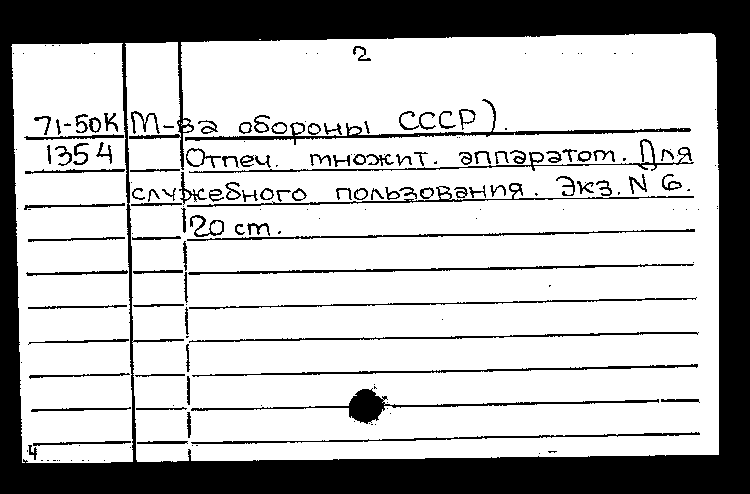 2
71-50К М-ва обороны СССР).
1354 Отпеч. множит. аппаратом. Для
служебного пользования. Экз. N 6.
20 см.
4